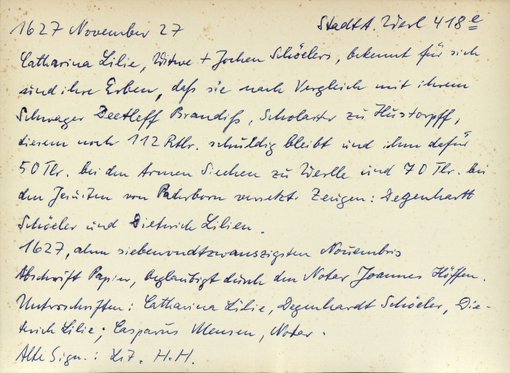 1627 November 27 StadtA. Werl 418e
Catharina Lilie, Witwe + Jochen Schöelers, bekennt für sich
und ihre Erben, daß sie nach Vergleich mit ihrem
Schwager Deetleff Brandiß, Scholaster zu Hustorpff,
diesem noch 112 Rtlr. schuldig bleibt und ihm dafür
50 Tlr. bei den Armen Siechen zu Werlle und 70 Tlr. bei
den Jesuiten von Paderborn versetzt. Zeugen: Degenhartt
Schöeler und Dietherich Lilien.
1627, ahm siebenundtzwanszigsten Nouembris
Abschrift Papier, beglaubigt durch den Notar Joannes Höffen.
Unterschriften: Catharina Lilie, Degenhardt Schöeler, Die-
terich Lilie; Casparus Mensen, Notar.
Alte Sign.: Lit. H.H.